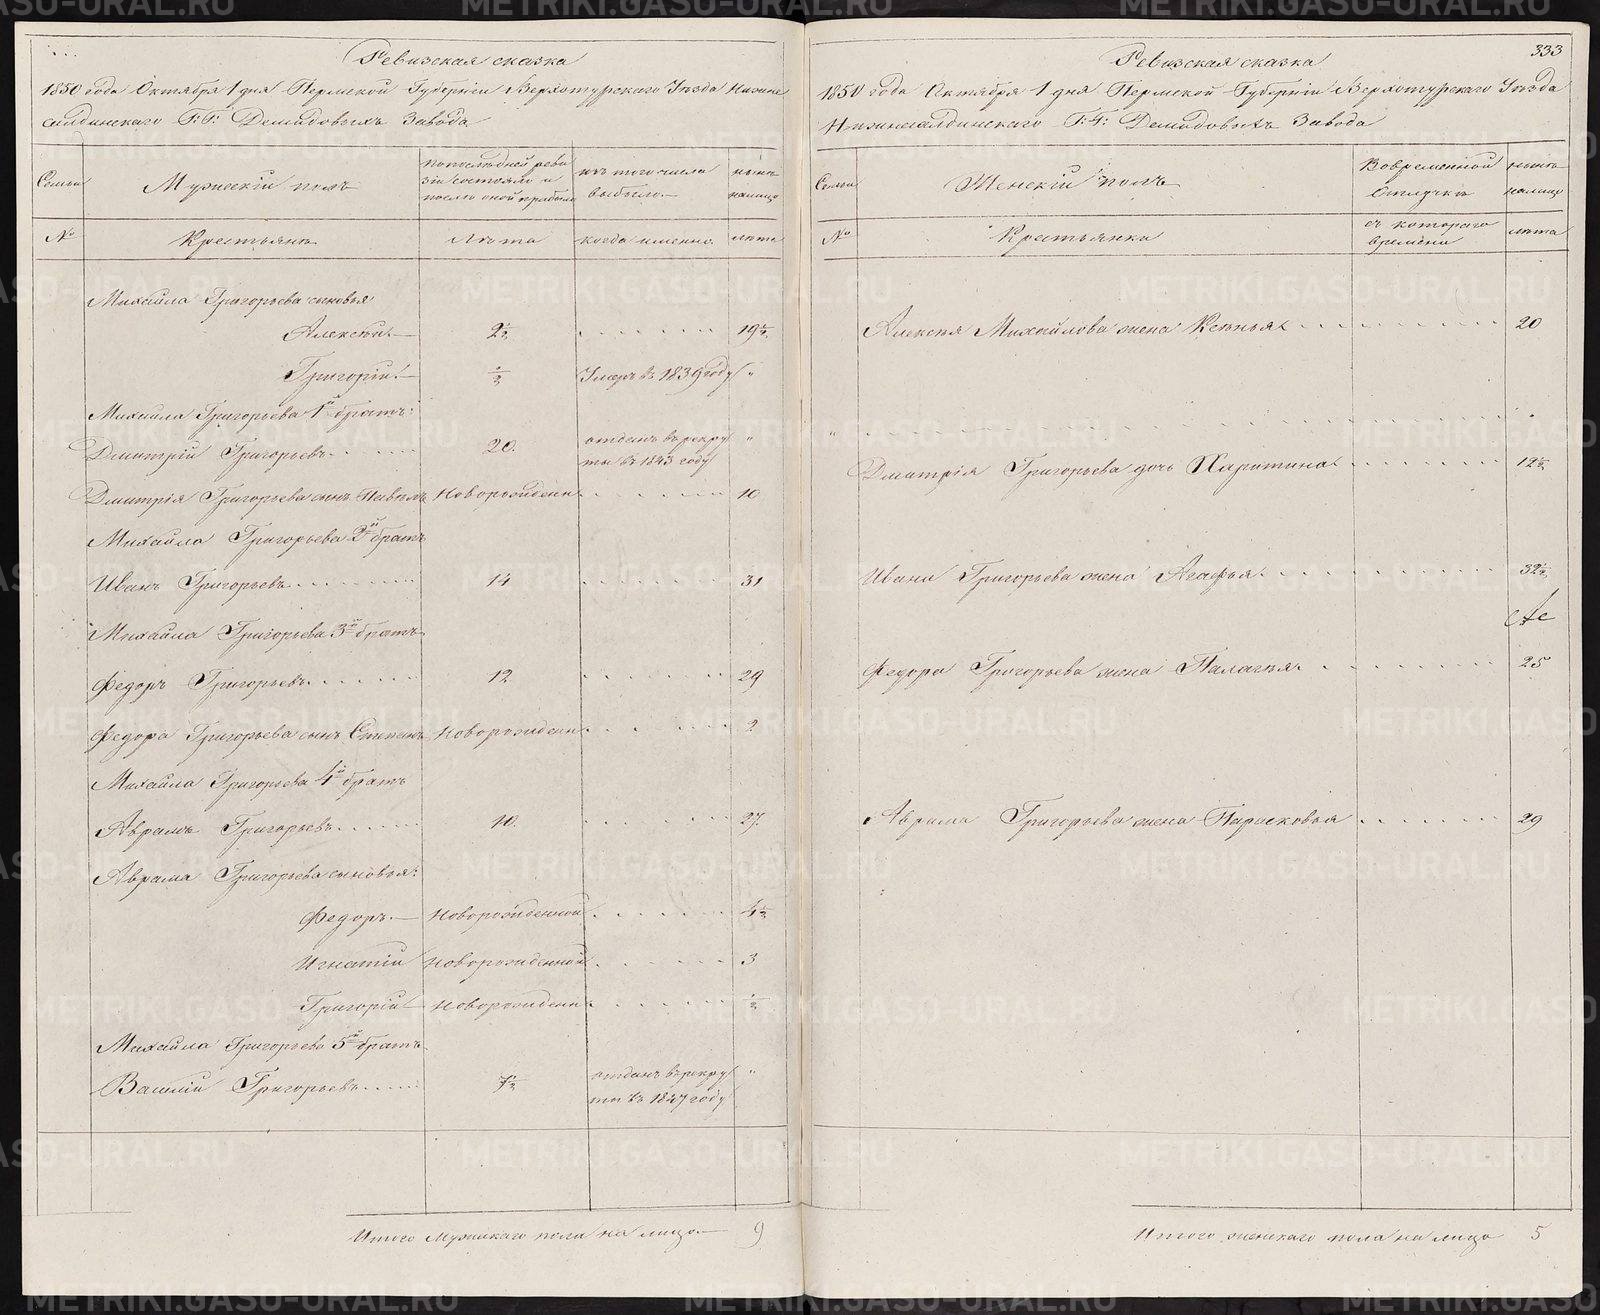 Ревизская сказка
1850 года Октября 1 дня Пермской Губерніи Верхотурскаго Уѣзда Нижне
салдинскаго Г:Г: Демидовыхъ Завода
Семьи
Мужескій полъ
по послѣдней реви
зіи состояло и
послѣ оной прибыло
изъ того числа
выбыло.
нынѣ
налицо
№
Крестьянъ
Лѣта
когда именно.
лѣта
Михайла Григорьева сыновья
Алексѣй. 2½ 19½
Григорій. ½ Умеръ въ 1839 году "
Михайла Григорьева 1й братъ:
Дмитрій Григорьевъ. 20. отданъ въ рекру
ты въ 1843 году "
Дмитрія Григорьева сынъ Павелъ Новорожден 10
Михайла Григорьева 2й братъ
Иванъ Григорьевъ 14 31
Михайла Григорьева 3й братъ
Федоръ Григорьевъ. 12 29
Федора Григорьева сынъ Степанъ Новорожден 2
Михайла Григорьева 4й братъ
Аврамъ Григорьевъ. 10. 27.
Аврама Григорьева сыновья:
Федоръ. Новорожденной 4½
Игнатій Новорожденной 3
Григорій Новорожден ½
Михайла Григорьева 5й братъ
Василій Григорьевъ. 7½ отданъ въ рекру
ты въ 1847 году "
Итого мужескаго пола на лицо 9
333
Ревизская сказка
1850 года Октября 1 дня Пермской Губерніи Верхотурскаго Уѣзда
Нижнесалдинскаго Г:Г: Демидовыхъ Завода
Семьи
Женскій полъ
Во временной
отлучкѣ
нынѣ
налицо
№
Крестьянки
съ котораго
времени
лѣта
Алексѣя Михайлова жена Ксенья 20
"
Дмитрія Григорьева дочь Харитина 12½
Ивана Григорьева жена Агафья. 32½
Федора Григорьева жена Палагѣя. 25
Аврама Григорьева жена Парасковья 29
Итого женскаго пола на лицо 5
METRIKI.GASO-URAL.RU